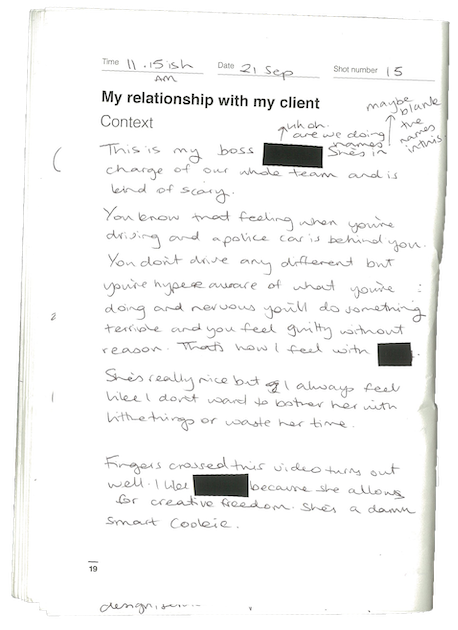 Time 11.15ish AM Date 21 Sep Shot number 15
My relationship with my client
Context
uhoh. are we doing names
maybe blank the names in this.
This is my boss She's in
charge of our whole team and is
kind of scary.
You know that feeling when you're
driving and a police car is behind you.
You don't drive any different but
you're hyper aware of what you're
doing and nervous you'll do something
terrible and you feel guilty without
reason. That's how I feel with .
She's really nice but I always feel
like I don't want to bother her with
little things or waste her time.
Fingers crossed this video turns out
well. I like because she allows
for creative freedom. She's a damn
smart cookie.
19